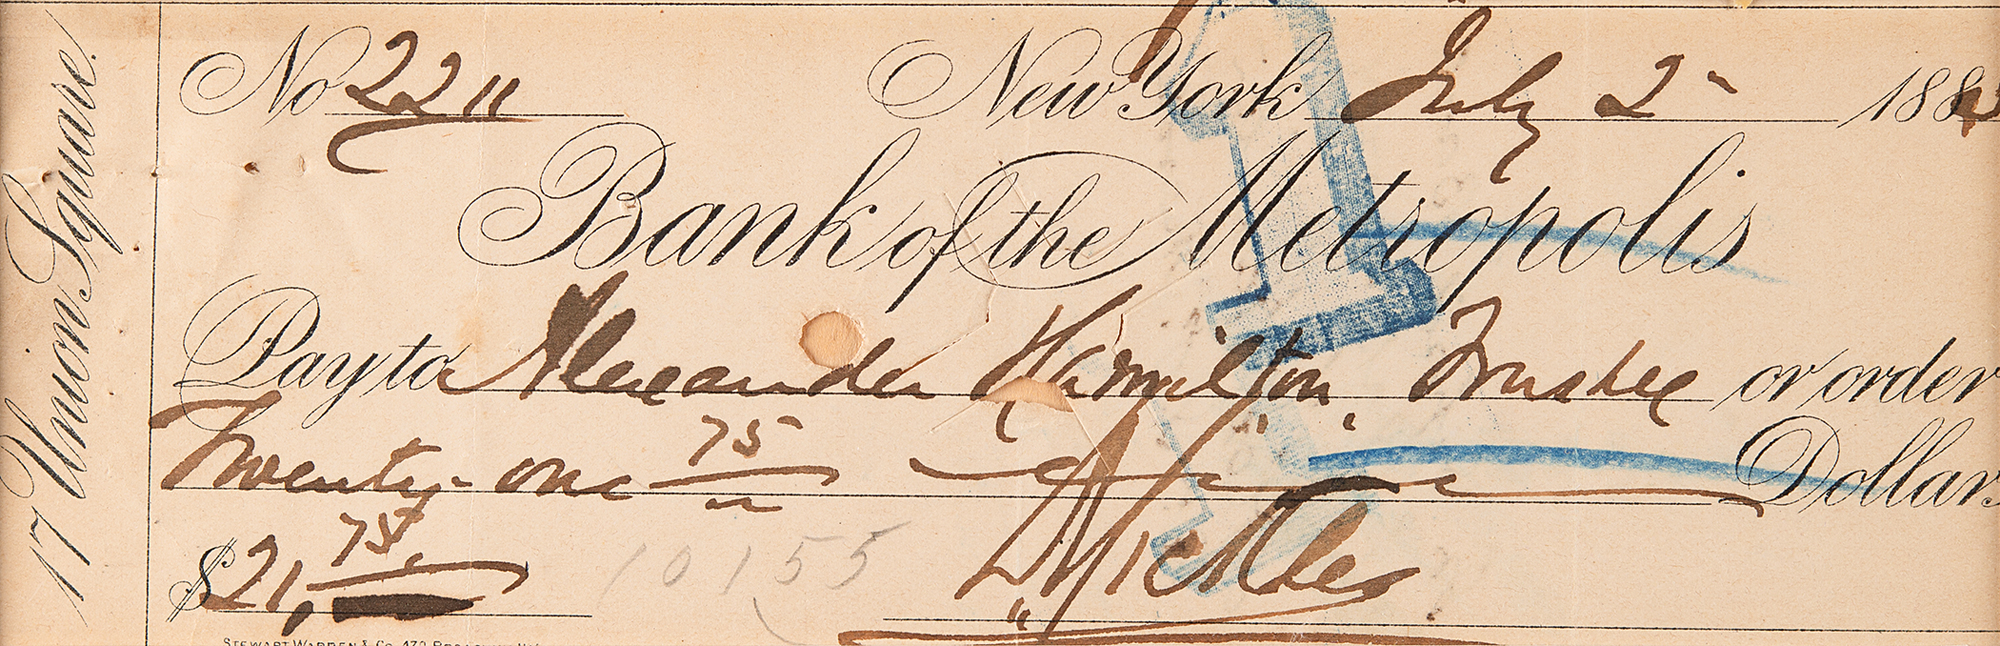 17 Union Square.
No 2211 New York July 2 - 188
Bank of the Metropolis
Pay to Alexander Hamilton, Trustee or order
Twenty-one 75/" Dollars
$21,75
10155
STEWART WARREN & Co. 470